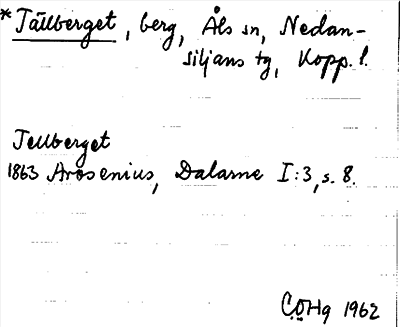 *Tällberget, berg, Åls sn, Nedan-
siljans tg, Kopp. l.
Tellberget
1863 Arosenius, Dalarne I:3, s. 8.
CÖHg 1962